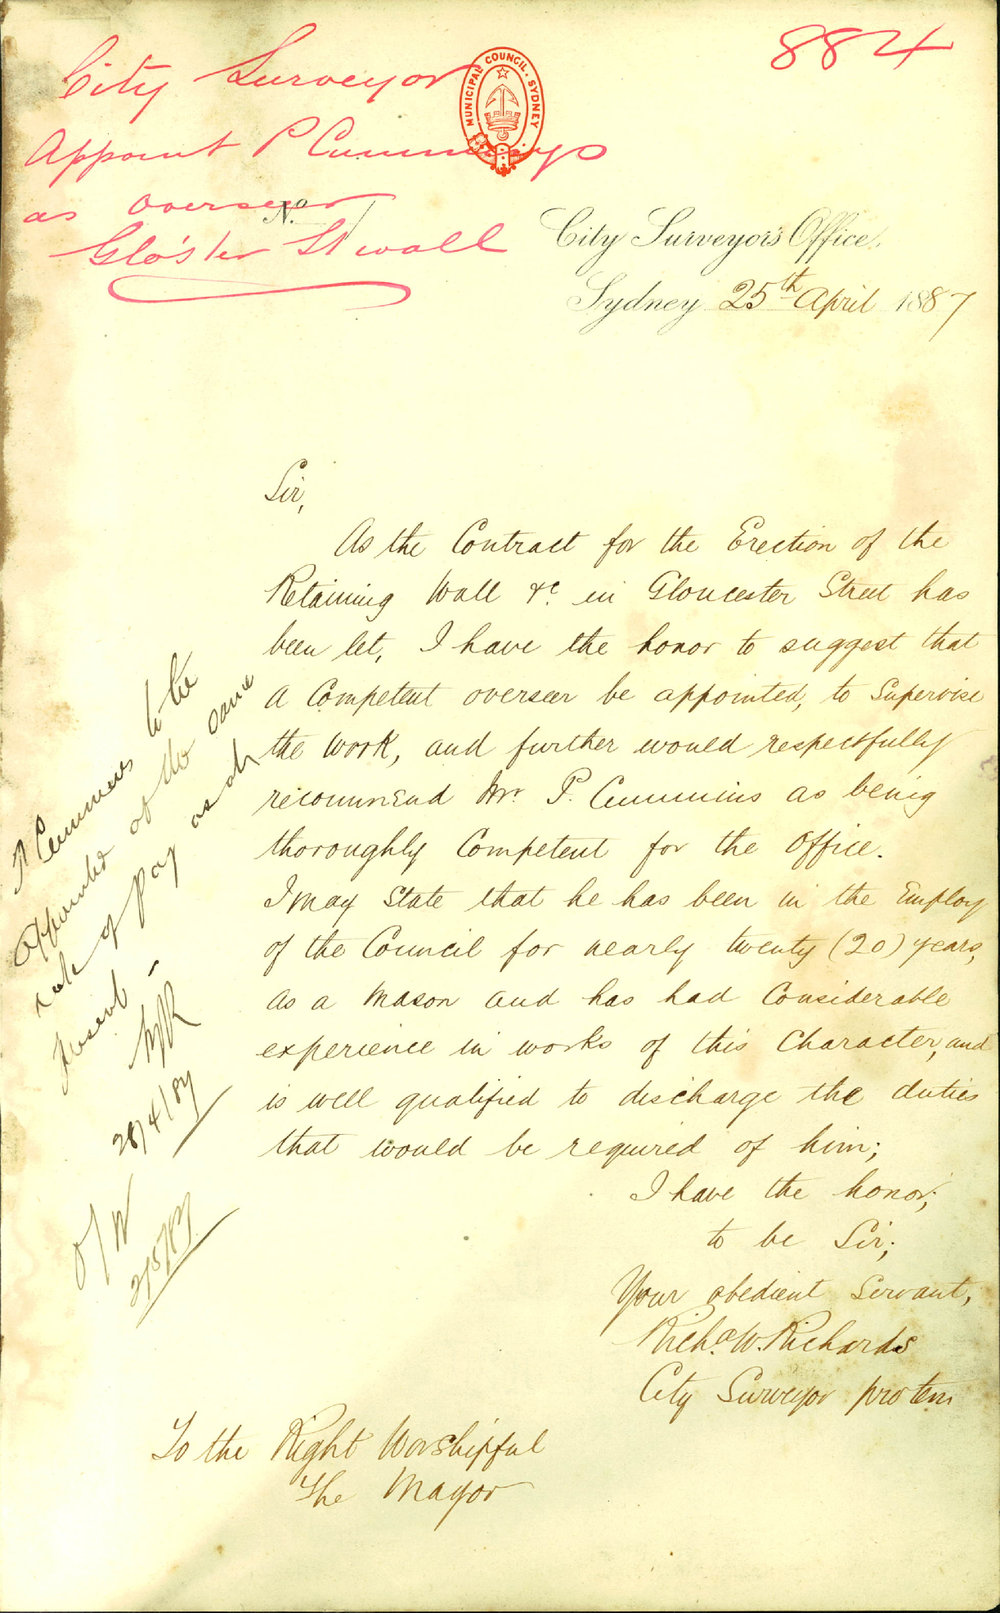 City Surveyor
Appoint P Cummings
as overseer
Glo'ster St wall
884
MUNICIPAL COUNCIL. SYDNEY
No.
City Surveyor's Office,
Sydney 25th April 1887
Sir,
As the Contract for the Erection of the
Retaining Wall &c. in Gloucester Street has
been let, I have the honor to suggest that
a Competent overseer be appointed, to Supervise
the work, and further would respectfully
recommend Mr. P. Cummins as being
thoroughly Competent for the Office.
I may State that he has been in the Employ
of the Council for nearly twenty (20) years,
as a Mason and has had Considerable
experience in works of this Character, and
is well qualified to discharge the duties
that would be required of him;
I have the honor;
to be Sir;
Your obedient Servant,
Richd. W. Richards
City Surveyor pro tem
To the Right Worshipful
The Mayor
P Cummins to be
appointed at the same
rate of pay as at
present -
28/4/87
2/5/87